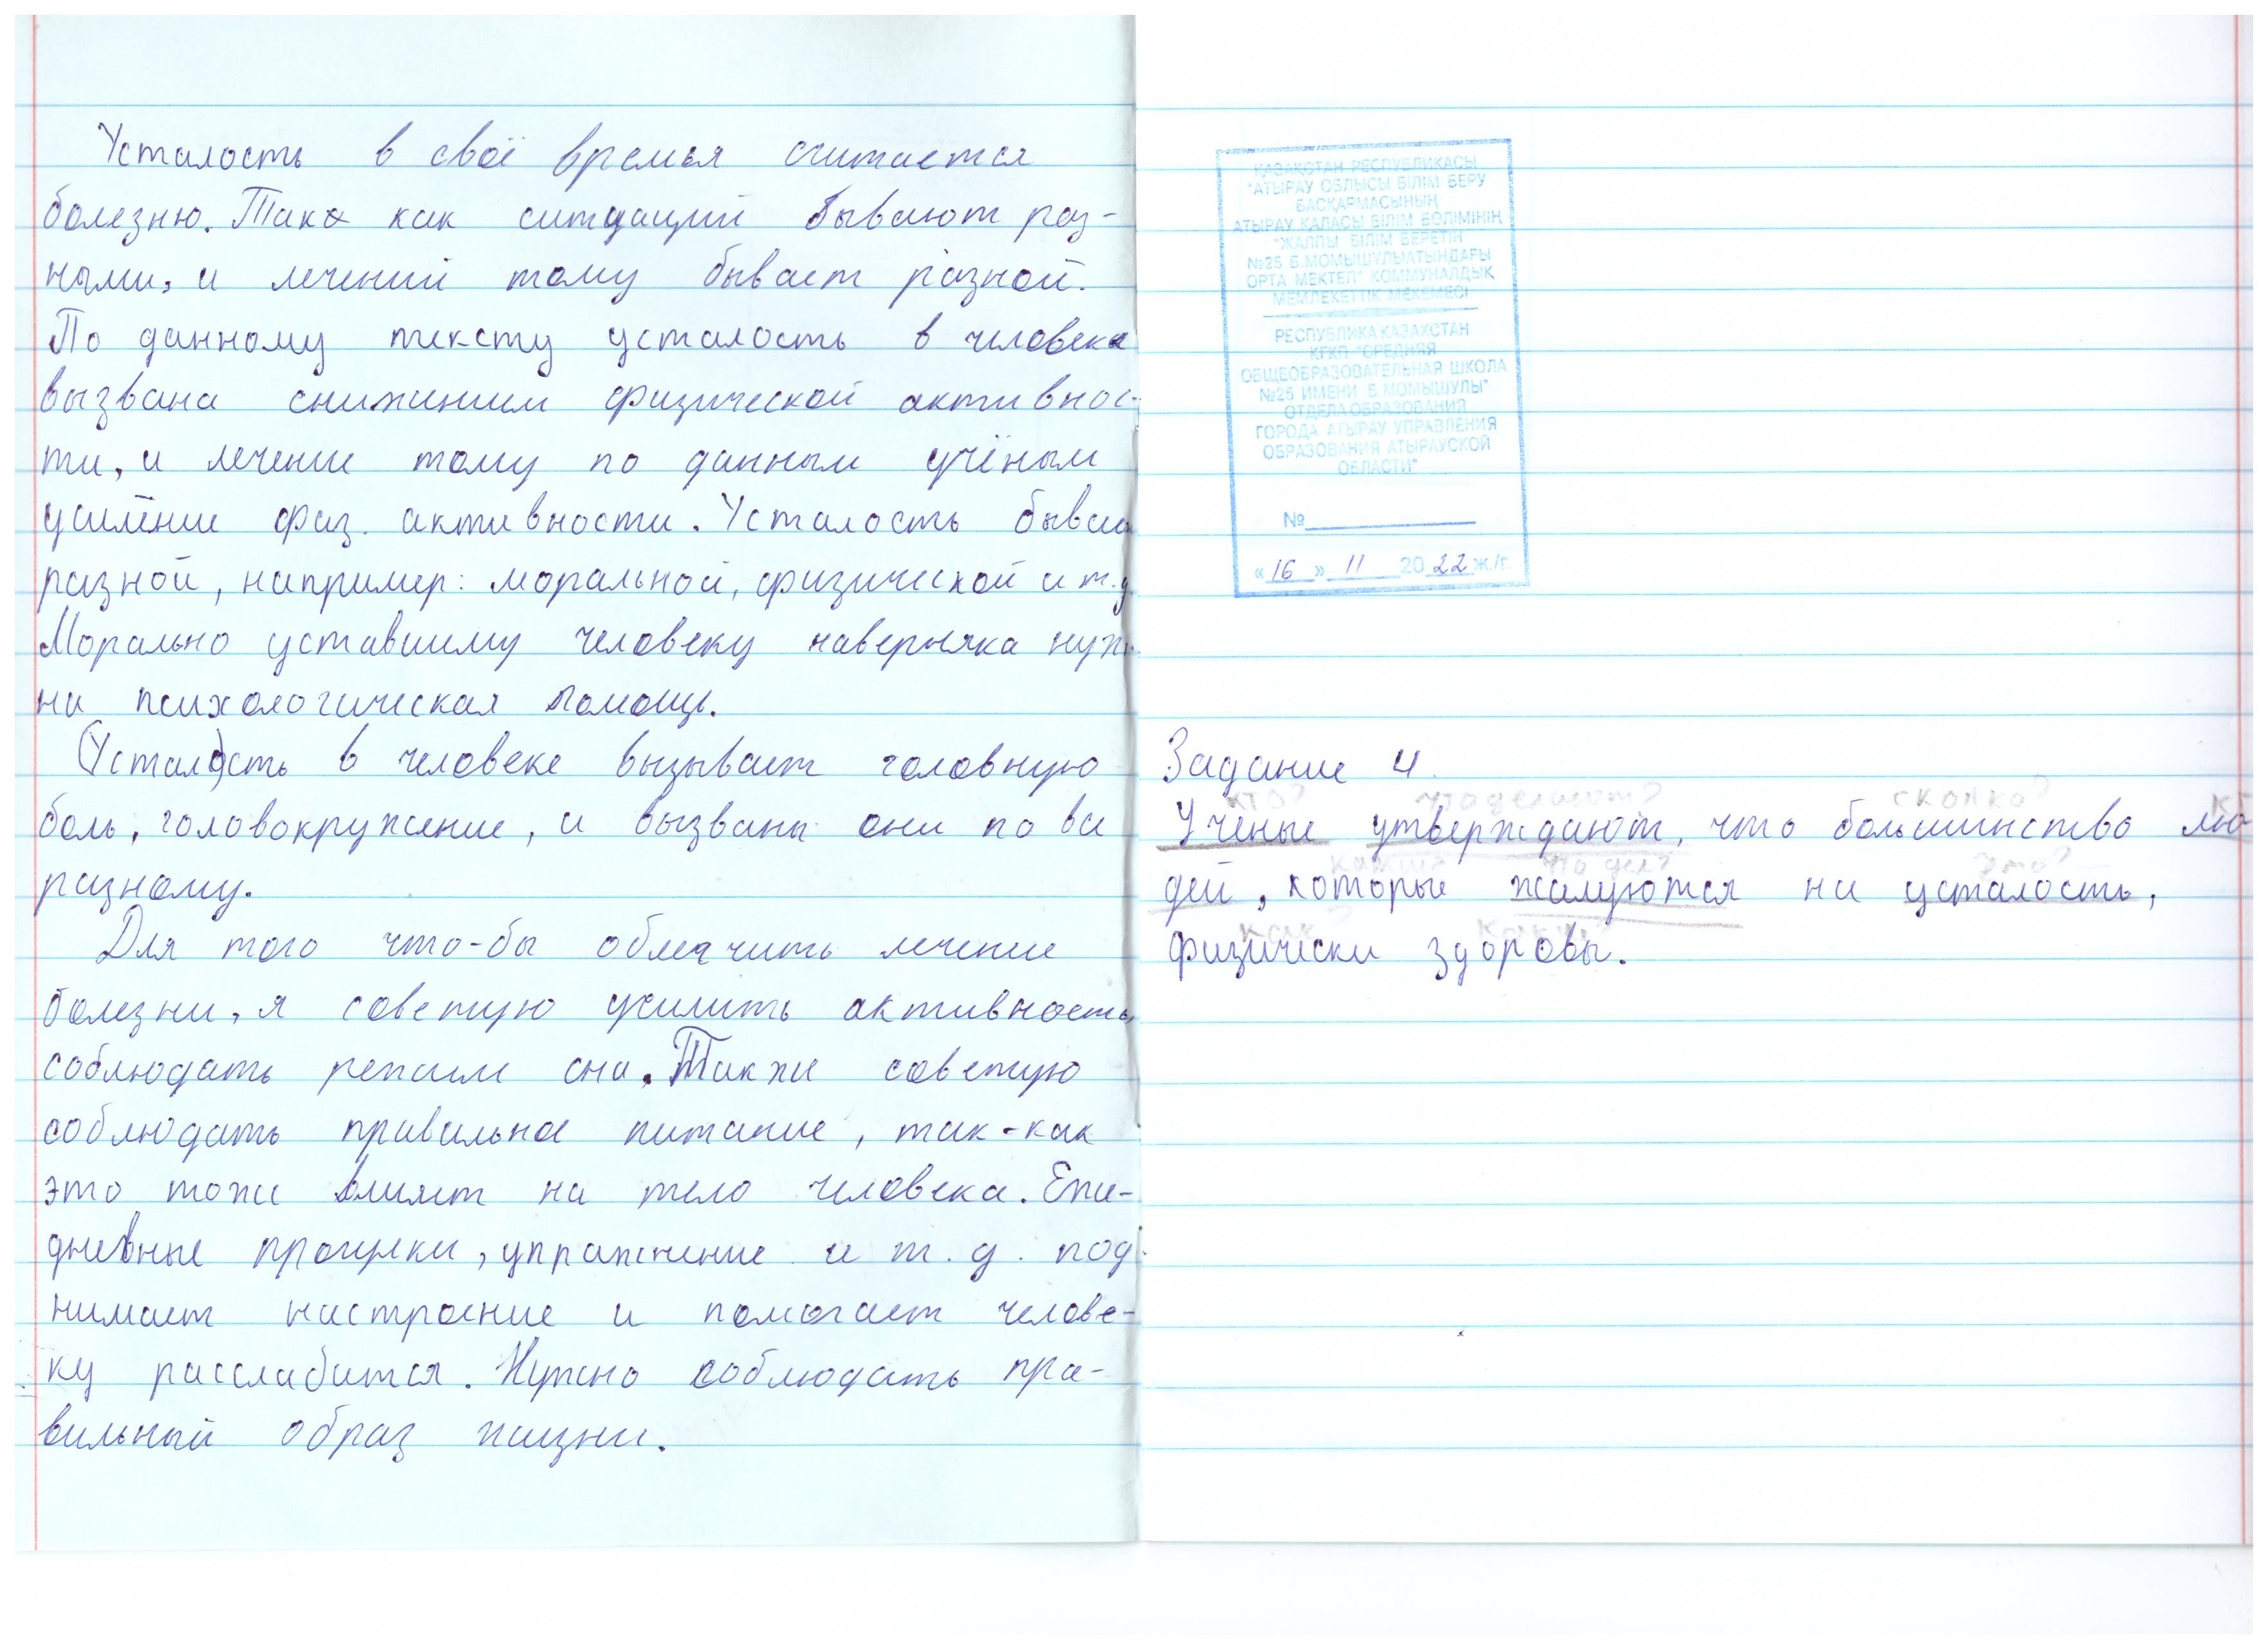 Усталость в своё времья считается
болезню. Така как ситуаций бывают раз-
ными, и лечений тому бывает разной.
По данному тексту усталость в человека
вызвана снижением физической активнос-
ти, и лечение тому по данным учёным
усилёние физ. активности. Усталость бывает
разной, например: моральной, физической и т.д.
Морально уставшему человеку наверняка нуж-
на психологическая помощь.
Усталость в человеке вызывает головную
боль, головокружение, и вызваны они по ва
разному.
Для того что-бы облегчить лечение
болезни, я советую усилить активность,
соблюдать режим сна. Также советую
соблюдать правильное питание, так-как
это тоже влияет на тело человека. Еже-
дневные прогулки, упражнение и т.д. под-
нимает настроение и помогает челове-
ку расслабится. Нужно соблюдать пра-
вильный образ жизни.
ҚАЗАҚСТАН РЕСПУБЛИКАСЫ
"АТЫРАУ ОБЛЫСЫ БІЛІМ БЕРУ
БАСҚАРМАСЫНЫҢ
АТЫРАУ ҚАЛАСЫ БІЛІМ БӨЛІМІНІҢ
"ЖАЛПЫ БІЛІМ БЕРЕТІН
№25 Б.МОМЫШҰЛЫ АТЫНДАҒЫ
ОРТА МЕКТЕП" КОММУНАЛДЫҚ
МЕМЛЕКЕТТІК МЕКЕМЕСІ
РЕСПУБЛИКА КАЗАХСТАН
КГКП "СРЕДНЯЯ
ОБЩЕОБРАЗОВАТЕЛЬНАЯ ШКОЛА
№25 ИМЕНИ Б.МОМЫШУЛЫ"
ОТДЕЛА ОБРАЗОВАНИЯ
ГОРОДА АТЫРАУ УПРАВЛЕНИЯ
ОБРАЗОВАНИЯ АТЫРАУСКОЙ
ОБЛАСТИ"
№
«16» 11 2022 ж./г.
Задание 4
кто? что делают? сколко?
Ученые утверждают, что большинство лю-
какие? что дел?
дей, которые жалуются на усталость,
как? какие?
физически здоровы.